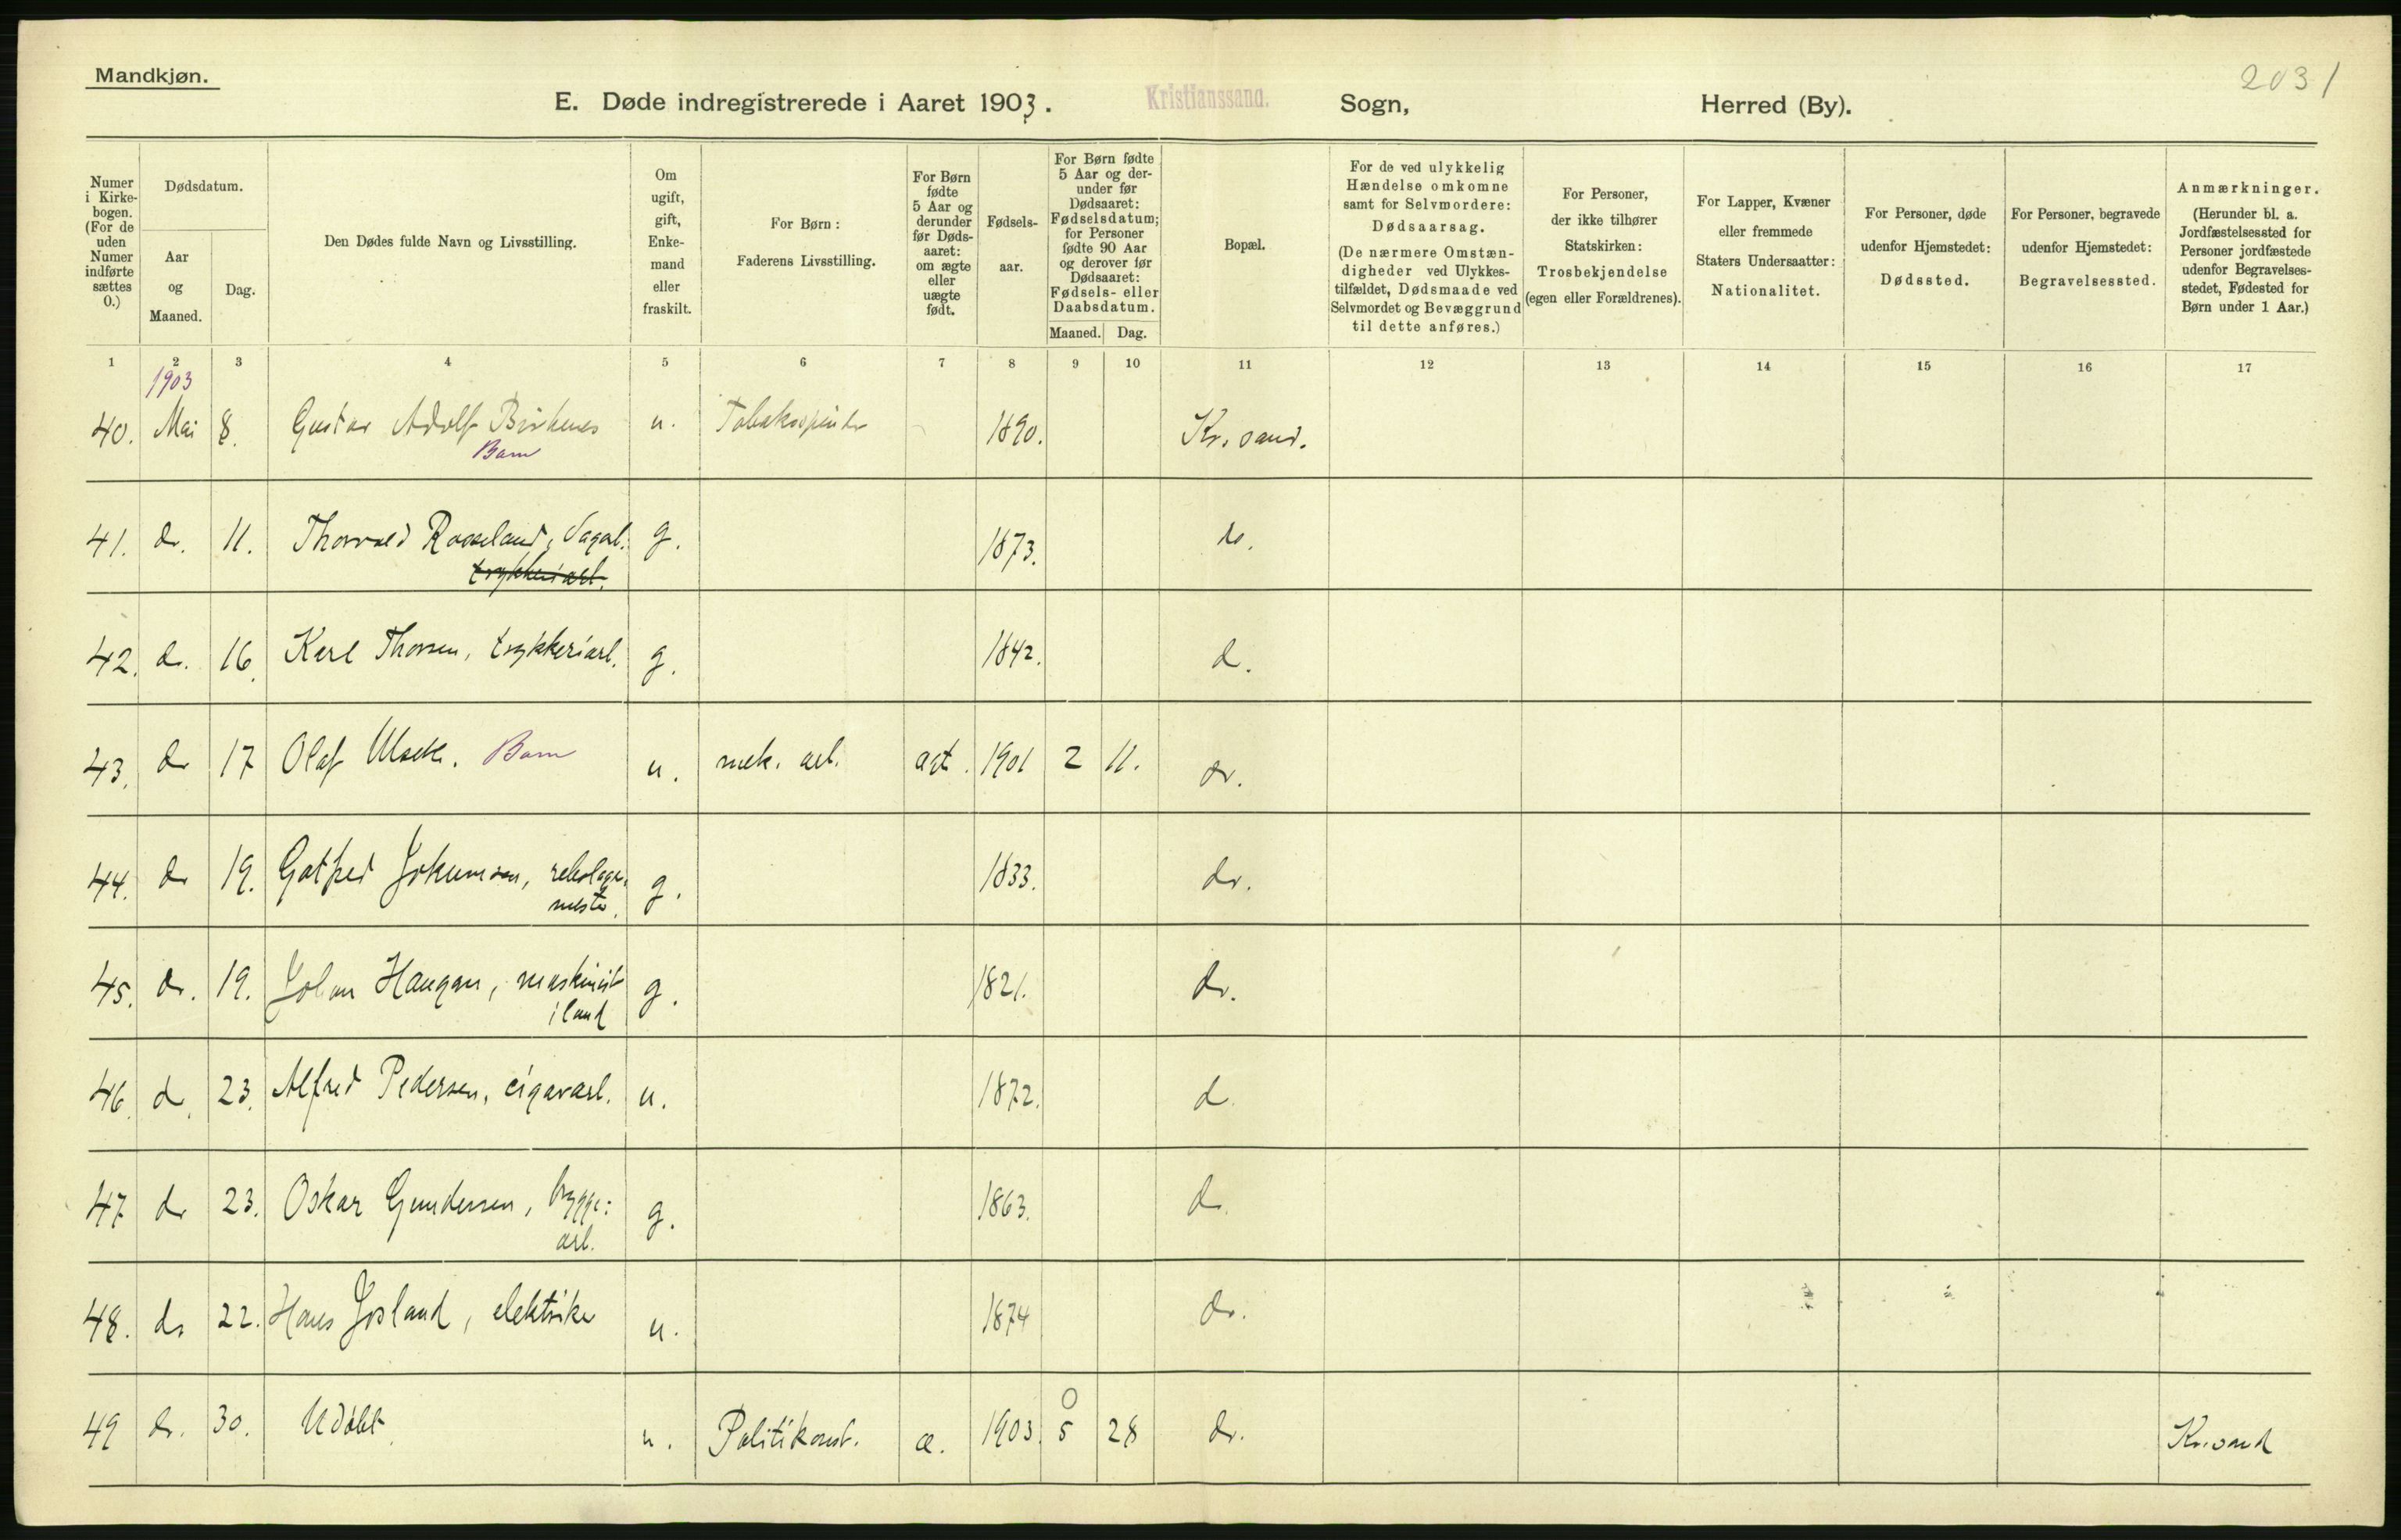 Mandkjøn.
2031
E. Døde indregistrerede i Aaret 1903. Kristianssand. Sogn, Herred (By).
Numer i Kirke-bogen. (For de uden Numer indførte sættes 0.)
Dødsdatum.
Aar og Maaned.
Dag.
Den Dødes fulde Navn og Livsstilling.
Om ugift, gift, Enke-mand eller fraskilt.
For Børn: Faderens Livsstilling.
For Børn fødte 5 Aar og derunder før Døds-aaret: om ægte eller uægte født.
Fødsels-aar.
For Børn fødte 5 Aar og der-under før Dødsaaret: Fødselsdatum; for Personer fødte 90 Aar og derover før Dødsaaret: Fødsels- eller Daabsdatum.
Maaned. Dag.
Bopæl.
For de ved ulykkelig Hændelse omkomne samt for Selvmordere: Dødsaarsag. (De nærmere Omstæn-digheder ved Ulykkes-tilfældet, Dødsmaade ved Selvmordet og Bevæggrund til dette anføres.)
For Personer, der ikke tilhører Statskirken: Trosbekjendelse (egen eller Forældrenes).
For Lapper, Kvæner eller fremmede Staters Undersaatter: Nationalitet.
For Personer, døde udenfor Hjemstedet: Dødssted.
For Personer, begravede udenfor Hjemstedet: Begravelsessted.
Anmærkninger. (Herunder bl. a. Jordfæstelsessted for Personer jordfæstede udenfor Begravelses-stedet, Fødested for Børn under 1 Aar.)
1 2 3 4 5 6 7 8 9 10 11 12 13 14 15 16 17
1903
40. Mai 8. Gustav Adolf Birkenes u. Tobakspinder 1890. Kr.sand.
Barn
41. do. 11. Thorvald Rosseland, Dagarb. g. 1873. do.
trykkeriarb.
42. do. 16. Karl Thorsen, trykkeriarb. g. 1842. do.
43. do 17 Olaf Barn u. mek. arb. ægt. 1901 2 11. do.
44. do 19. Gotfred Jokumsen, rebslager g. 1833. do.
mester.
45. do. 19. Johan Haugan, maskinist g. 1821. do.
i land
46. do. 23. Alfred Pedersen, cigararb. u. 1872. do
47 do 23. Oskar Gundersen, brygge: g. 1863. do.
arb.
48. do 22. Hans Josland, elektriker u. 1874 do.
0
49 do. 30. Udøbt u. Politikonst. æ. 1903. 5 28 do. Kr.sand